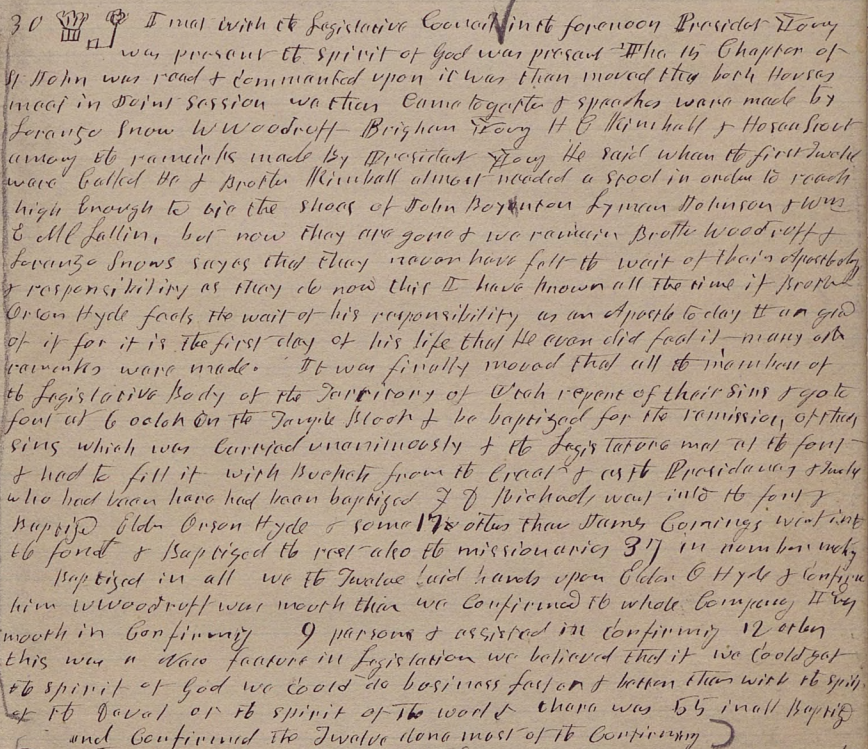 30 I met with the Legislative Council in the forenoon President Young
was present the spirit of God was present The 15 Chapter of
St John was read & commented upon it was then moved that both Houses
meet in Joint Session we then came together & speaches were made by
Lorenzo Snow W Woodruff Brigham Young H C Kimball & Hosea Stout
among the remarks made By President Young He said when the first Twelve
were Called He & Brother Kimball almost needed a stool in order to reach
high Enough to tie the shoes of John Boynton Lyman Johnson & Wm
E McLellin, but now they are gone & we remain Brother Woodruff &
Lorenzo Snows sayes that they never have felt the wait of their Apostleship
& responsibility as they do now this I have known all the time if Brother
Orson Hyde feels the wait of his responsibility as an Apostle to day I am glad
of it for it is the first day of his life that He ever did feel it many oth
remarks were made. It was finally moved that all the members of
the Legislative Body of the Territory of Utah repent of their sins & go to
font at 6 oclok On the Temple Block & be baptized for the remission of their
sins which was Carried unanimously & the Legislature met at the font
& had to fill it with Buckets from the Creek & as the Presidency & Twelve
who had been here had been baptized F D Richards went into the font &
Baptized Elder Orson Hyde & some 17 others then James Comings went into
the font & Baptized the rest also the missionaries 37 in number
Baptized in all we the Twelve laid hands upon Elder O Hyde & Confirm
him W Woodruff was mouth then we Confirmed the whole Company I was
mouth in Confirmig 9 persons & assisted in Confirmig 12 other
this was a New feature in Legislation we believed that if we Could get
the spirit of God we Could do business faster & better than with the spirit
of the Devel or the spirit of the world there was 55 in all Baptized
and Confirmed the Twelve done most of the Confirming